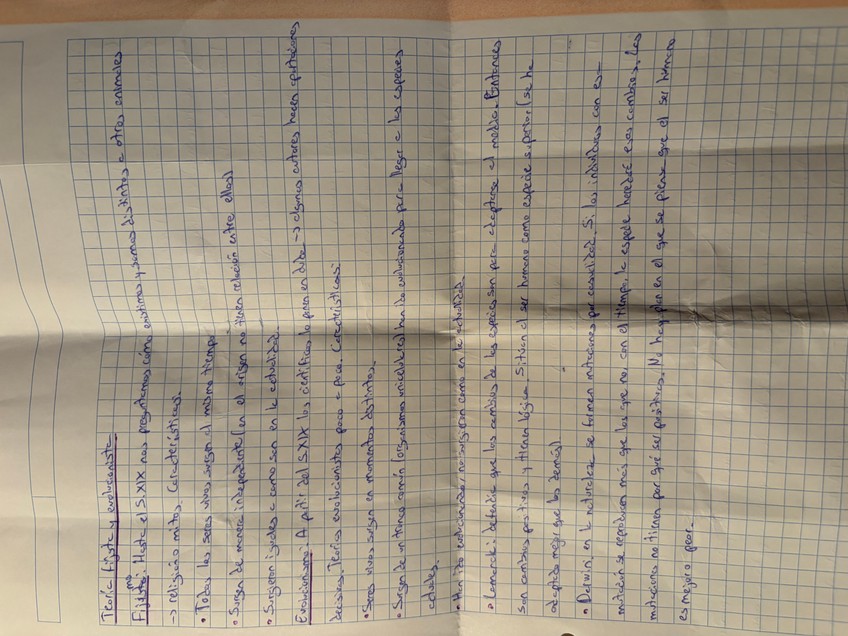 Teoría fijista y evolucionista
Fijismo: Hasta el S.XIX nos preguntamos cómo existimos y somos distintos a otros animales
→ religión, mitos. Características:
• Todos los seres vivos surgen al mismo tiempo
• Surgen de manera independiente (en el origen no tienen relación entre ellos)
• Surgieron iguales a como son en la actualidad.
Evolucionismo: A partir del S.XIX los científicos lo ponen en duda → algunos autores hacen aportaciones
decisivas. Teorías evolucionistas poco a poco. Características:
• Seres vivos surgen en momentos distintos.
• Surgen de un tronco común (organismos unicelulares) han ido evolucionando para llegar a las especies
actuales.
• Han ido evolucionando, no surgieron como en la actualidad.
• Lamarck: defendía que los cambios de las especies son para adaptarse al medio. Entonces
son cambios positivos y tienen lógica. Sitúan al ser humano como especie superior (se ha
adaptado mejor que los demás)
• Darwin: en la naturaleza se forman mutaciones por casualidad. Si los individuos con esa
mutación se reproducen más que los que no, con el tiempo, la especie heredará esos cambios. Las
mutaciones no tienen por qué ser positivas. No hay plan en el que se piense que el ser humano
es mejor o peor.